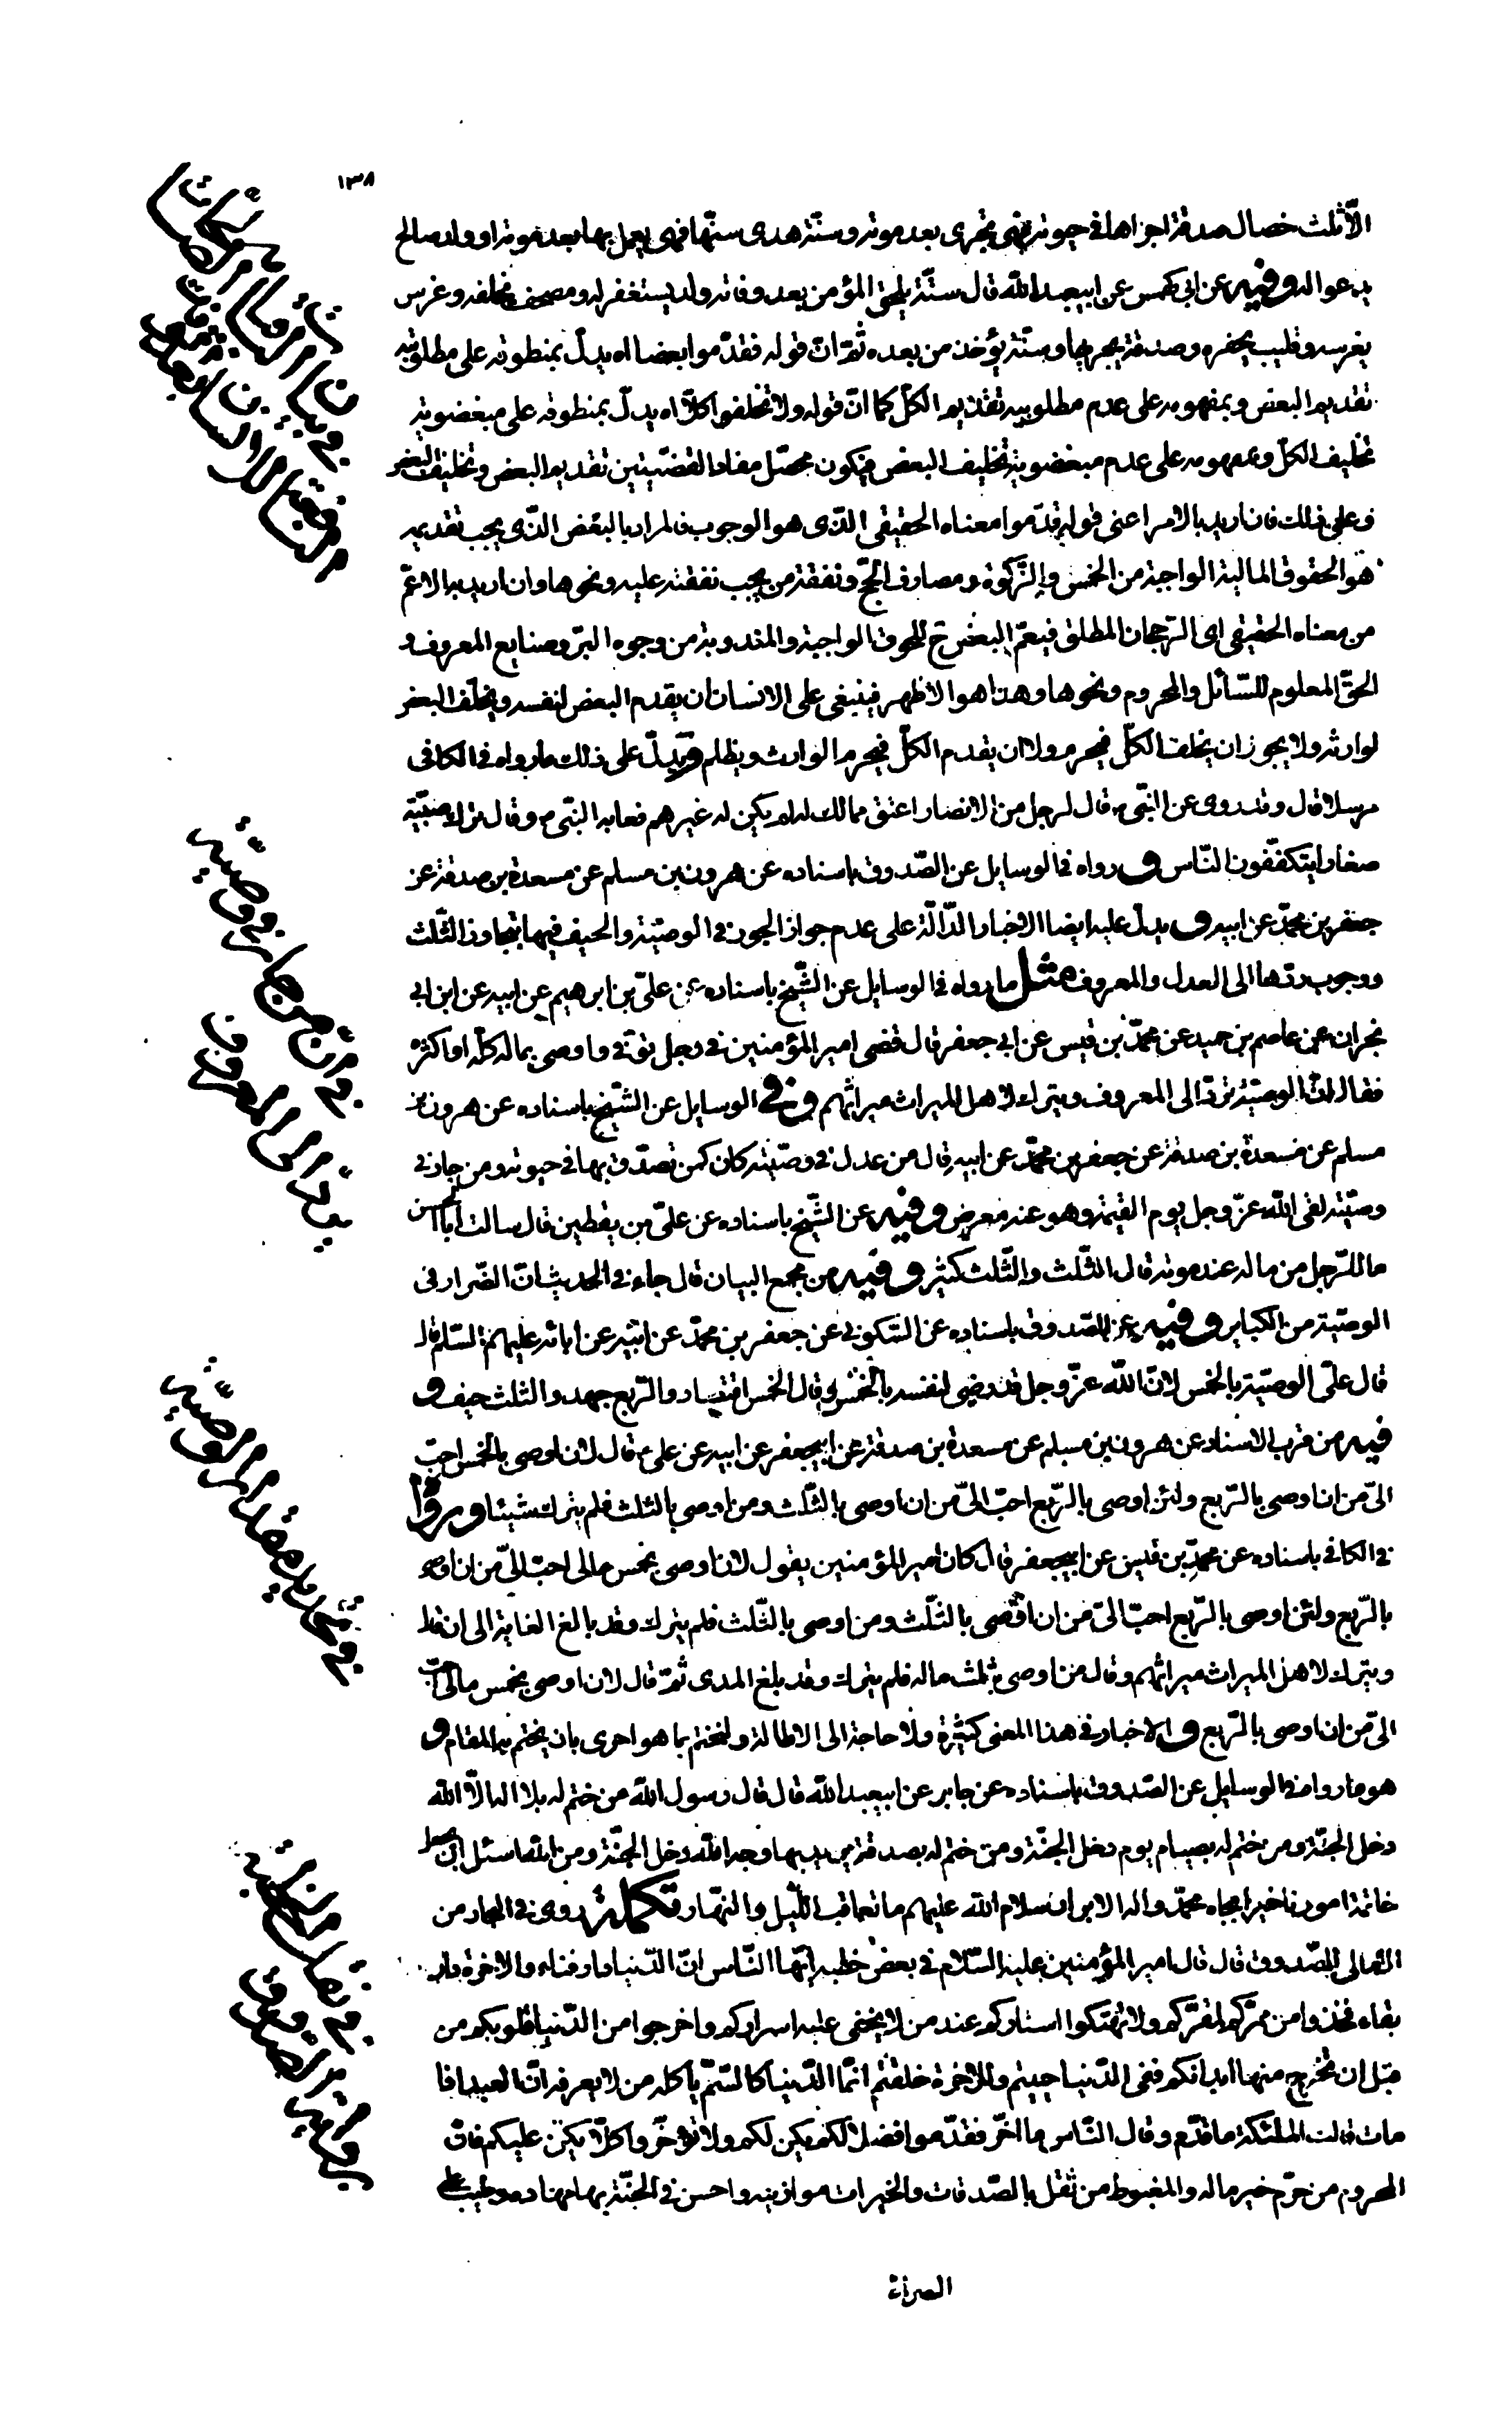 ١٣٨
الّا ثلث خصال صدقة اجراها فى حيوته فهى تجرى بعد موته وسنّة هدى سنّها فهى يعمل بها بعد موته او ولد صالح
يدعو اله وفيه عن ابى كهمس عن ابيعبد الله قال ستّة يلحق المؤمن بعد وفاته ولد يستغفر له ومصحف يخلفه وغرس
يغرسه وقليب يحفره وصدقة يجريها وسنّة يؤخذ من بعده ثمّ انّ قوله فقدّموا بعضا اه يدلّ بمنطوقه على مطلوبيّة
تقديم البعض وبمفهومه على عدم مطلوبيه تقديم الكلّ كما انّ قوله ولا تخلفوا كلّا اه يدلّ بمنطوقه على مبغضوبية
تخليف الكلّ وبمفهومه على عدم مبغضوبية تخليف البعض فيكون محصّل مفاد القضيّتين تقديم البعض وتخليف البعض
وعلى ذلك فان اريد بالامر اعنى قوله قدّموا معناه الحقيقى الّذى هو الوجوب فالمراد بالبعض الّذى يجب تقديمه
هو الحقوق المالية الواجبة من الخمس والزّكوة ومصارف الحجّ ونفقة من يجب نفقته عليه ونحوها وان اريد به الاعمّ
من معناه الحقيقى اى الرّجحان المطلق فيعمّ البعض ح للحقوق الواجبة والمندوبة من وجوه البرّ وصنايع المعروف و
الحقّ المعلوم للسّائل والمحروم ونحوها وهذا هو الاظهر فينبغى على الانسان ان يقدم البعض لنفسه ويخلّف البعض
لوارثه ولا يجوز ان يخلف الكلّ فيحرم ولا ان يقدم الكلّ فيحرم الوارث ويظلم ويدلّ على ذلك ما رواه فى الكافى
مرسلا قال وقد روى عن النبّى ص قال لرجل من الانصار اعتق مماليك له لم يكن له غيرهم فعابه النبّى ص وقال ترك صبيّة
صغارا يتكفّفون النّاس و رواه فى الوسايل عن الصّدوق باسناده عن هرون بن مسلم عن مسعدة بن صدقة عن
جعفر بن محمّد عن ابيه و يدلّ عليه ايضا الاخبار الدّالّة على عدم جواز الجور فى الوصيّة والحيف فيها بتجاوز الثّلث
ووجوب ردّها الى العدل والمعروف مثل ما رواه فى الوسايل عن الشّيخ باسناده عن علىّ بن ابرهيم عن ابيه عن ابن ابى
نجران عن عاصم بن حميد عن محمّد بن قيس عن ابى جعفر قال قضى امير المؤمنين فى رجل توفّى واوصى بماله كلّه او اكثره
فقال انّ الوصيّة تردّ الى المعروف ويترك لاهل الميراث ميراثهم و فى الوسايل عن الشّيخ باسناده عن هرون بن
مسلم عن مسعدة بن صدقة عن جعفر بن محمّد عن ابيه قال من عدل فى وصيّته كان كمن تصدّق بها فى حيوته ومن جار فى
وصيّته لقى الله عزّ وجل يوم القيمة وهو عنه معرض وفيه عن الشّيخ باسناده عن علىّ بن يقطين قال سالت ابا الحسن
ما للرّجل من ماله عند موته قال الثّلث والثّلث كثير و فيه من مجمع البيان قال جاء فى الحديث انّ الضّرار فى
الوصيّة من الكباير وفيه عن الصّدوق باسناده عن السّكونى عن جعفر بن محمّد عن ابيه عن ابائه عليهم السّلم قال
قال علىّ الوصيّة بالخمس لانّ الله عزّ وجل قد رضى لنفسه بالخمس وقال الخمس اقتصاد والرّبع جهد والثلث حيف و
فيه من قرب الاسناد عن هرون بن مسلم عن مسعدة بن صدقة عن ابيجعفر عن ابيه عن على ع قال لان اوصى بالخمس احبّ
الىّ من ان اوصى بالرّبع ولئن اوصى بالرّبع احبّ الىّ من ان اوصى بالثّلث ومن اوصى بالثلث فلم يترك شيئا وروا
فى الكافى باسناده عن محمّد بن قيس عن ابيجعفر قال كان امير المؤمنين يقول لان اوصى بخمس مالى احبّ الىّ من ان اوصى
بالرّبع ولئن اوصى بالرّبع احبّ الىّ من ان اوصى بالثّلث ومن اوصى بالثّلث فلم يترك وقد بالغ الغاية الى ان قال
ويترك لاهل الميراث ميراثهم وقال من اوصى بثلث ماله فلم يترك وقد بلغ المدى ثمّ قال لان اوصى بخمس مالى احبّ
الىّ من ان اوصى بالرّبع و الاخبار فى هذا المعنى كثيرة ولا حاجة الى الاطالة ولنختم بما هو احرى بان يختم به المقام و
هو ما رواه فى الوسايل عن الصّدوق باسناده عن جابر عن ابيعبد الله قال قال رسول الله من ختم له بلا اله الّا الله
دخل الجنّة ومن ختم له بصيام يوم دخل الجنّة ومن ختم له بصدقة يريد بها وجه الله دخل الجنّة ومن الله اسئل ان يجعل
خاتمة امورنا خيرا بجاه محمّد واله الابرار سلام الله عليهم ما تعاقب اللّيل والنّهار تكملة روى فى البحار من
الامالى للصّدوق قال قال امير المؤمنين عليه السّلام فى بعض خطبه ايّها النّاس انّ الدّنيا دار فناء والاخرة دار
بقاء فخذوا من ممرّكم لمقرّكم ولا تهتكوا استاركم عند من لا يخفى عليه اسراركم واخرجوا من الدّنيا قلوبكم من
قبل ان تخرج منها ابدانكم ففى الدّنيا حييتم وللاخرة خلقتم انّما الدّنيا كالسّمّ ياكله من لا يعرفه انّ العبد اذا
مات قالت الملئكة ما قدّم وقال النّاس ما اخّر فقدّموا فضلا لكم يكن لكم ولا تؤخّروا كلّا يكن عليكم فانّ
المحروم من حرّم خير ماله والمغبوط من ثقل بالصّدقات والخيرات موازينه واحسن فى الجنّة بها مهاده وطيب على
الصراة